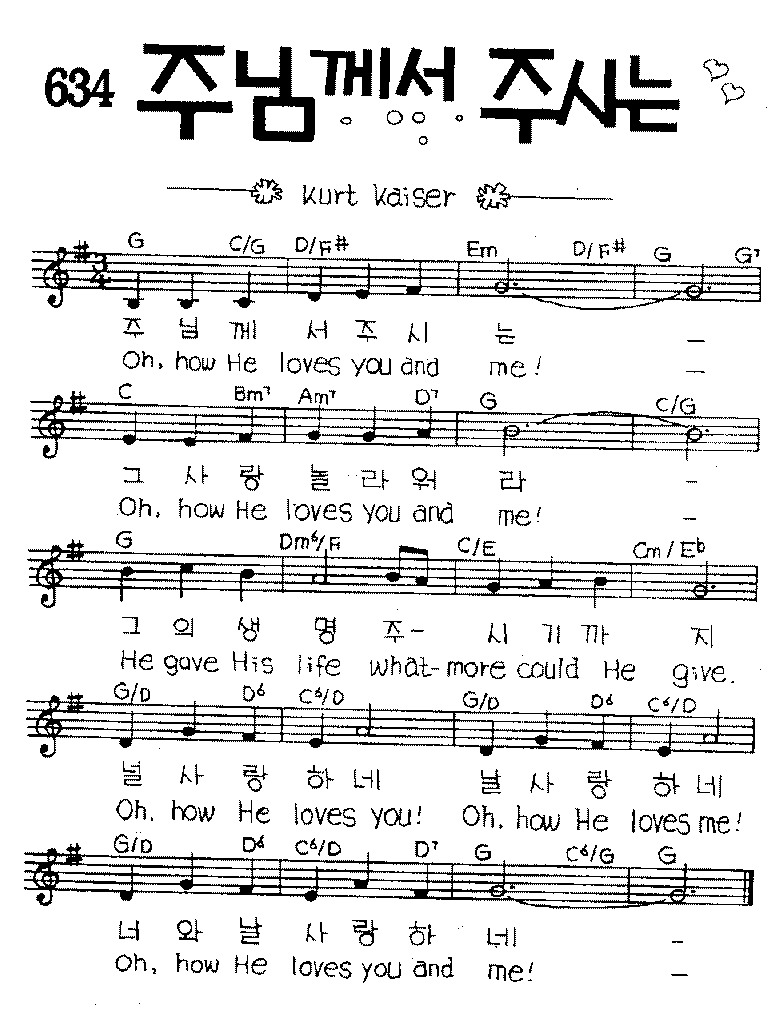 634 주님께서 주시는
Kurt Kaiser
G C/G D/F# Em D/F# G G7
3/4
주 님 께 서 주 시 는 -
Oh, how He loves you and me! -
C Bm7 Am7 D7 G C/G
그 사 랑 놀 라 워 라 -
Oh, how He loves you and me! -
G Dm6/F C/E Cm/Eb
그 의 생 명 주- 시 기 까 지
He gave His life what-more could He give.
G/D D6 C6/D G/D D6 C6/D
널 사 랑 하 네 날 사 랑 하 네
Oh, how He loves you! Oh, how He loves me!
G/D D6 C6/D D7 G C6/G G
너 와 날 사 랑 하 네 -
Oh, how He loves you and me! -